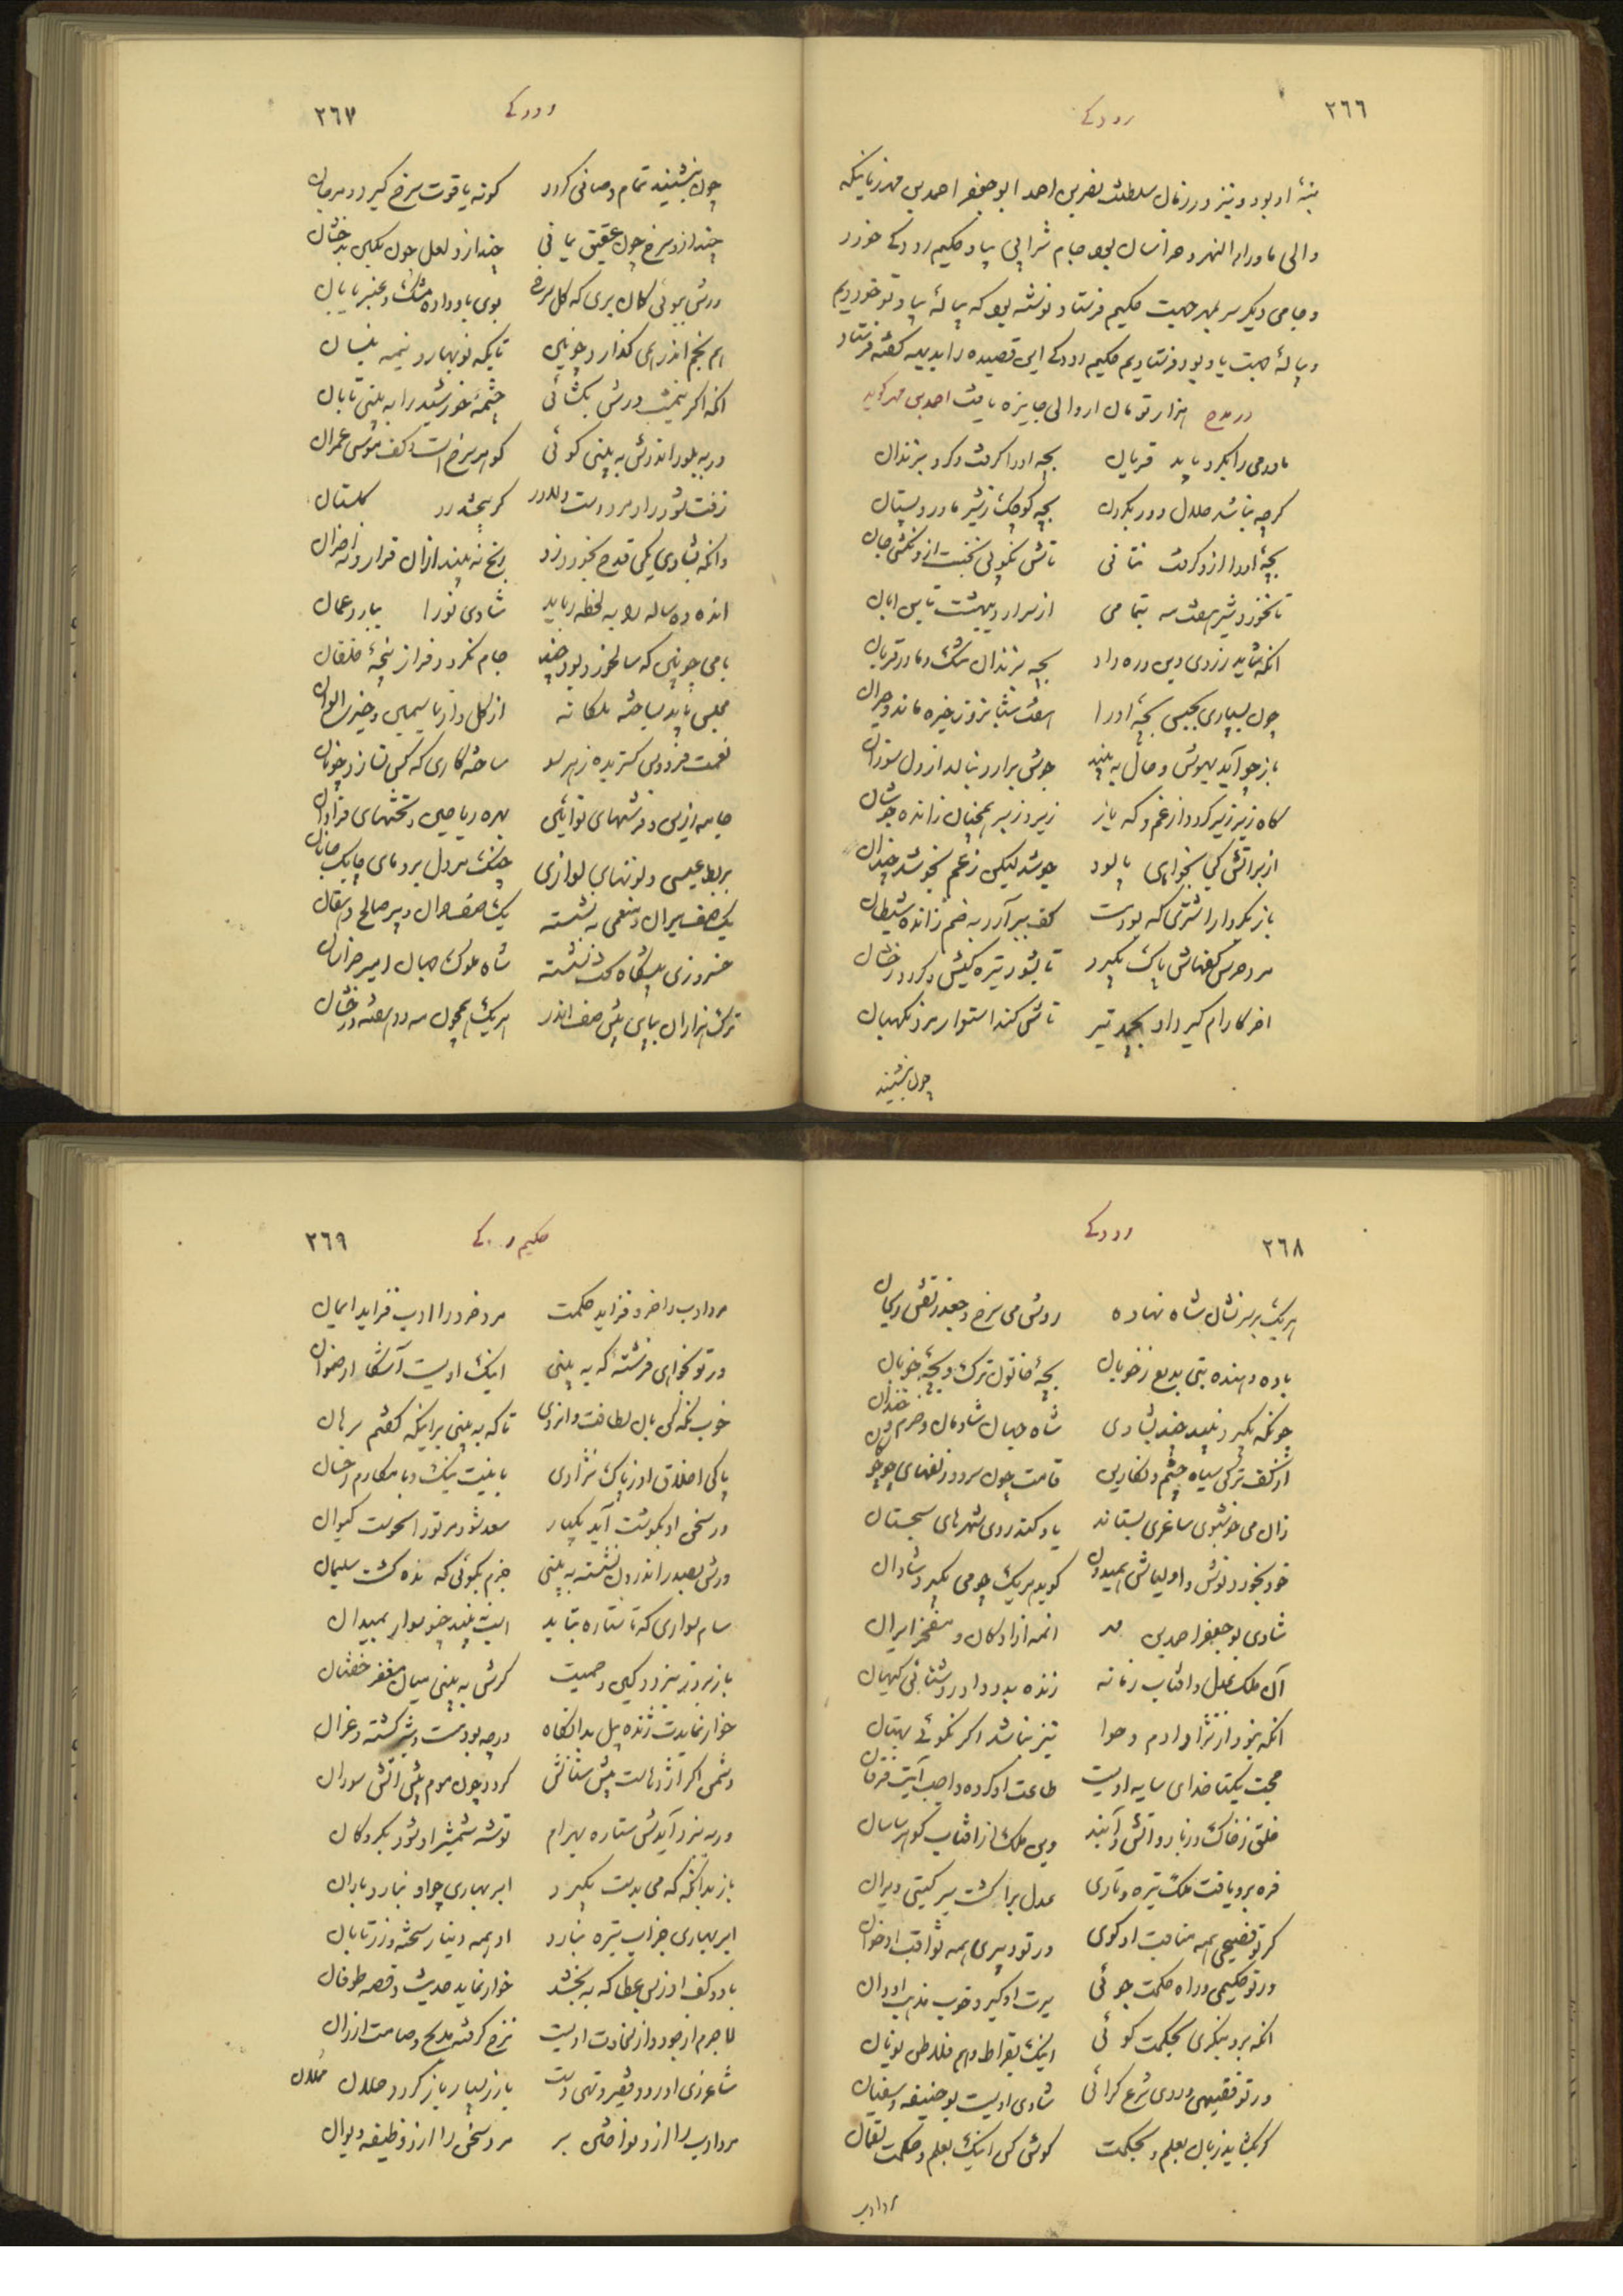 ٢٦٦
رودکے
بنهٔ او بود و نیز در زمان سلطنت نصر بن احمد ابو جعفر احمد بن مهد زمانیکه
والی ماوراء النهر و خراسان بود جام شرابی بیاد حکیم رودکے خورد
و جامی دیگر سر بمهر جهت حکیم فرستاد نوشته بود که پیالهٔ بیاد تو خوردیم
و پیالهٔ جهت یاد بود فرستادیم حکیم رودکے این قصیده را بدیهه گفته فرستاد
هزار تومان از والی جایزه یافت در مدح احمد بن مهد گوید
مادر می را بکرد باید قربان بچه او را گرفت و کرد بزندان
گرچه نباشد حلال دور بکردن بچه کوچک ز شیر مادر و پستان
بچهٔ او را ازو گرفت نتانی تاش نکوبی نخست ازو نکشی جان
تا نخورد شیر هفت مه بتمامی از سر اردیبهشت تا بن ابان
انکه شاید ز روی دین و ره داد بچه بزندان تنگ و مادر قربان
چون بسپاری بحبس بچهٔ او را هفت شبانروز خیره ماند و حیران
باز چو آید بهوش و حال به بیند جوش برارد بنالد از دل سوزان
گاه زبر زیر گردد از غم و گه باز زیر و زبر همچنان ز انده جوشان
زر براتش کجا بخواهی پالود جوشد لیکن ز غم نجوشد چندان
باز بکردار اشتری که بود مست کف ببر آرد به خم ز انده شیطان
مرد حرس کفهاش پاک بگیرد تا بشود تیره گیش و گردد رخشان
اخر کارام گیرد او بچد تیر تاش کند استوار مرد نگهبان
چون بنشیند
٢٦٧
رودکے
چون بنشیند تمام و صافی گردد گونه یاقوت سرخ گیرد و مرجان
چند ازو سرخ چون عقیق یمانی چند ازو لعل چون نگین بدخشان
ورش ببوئی گمان بری که گل سرخ بوی باو داده مشک و عنبر با بان
هم بخم اندر همی گذارد چونین تا بگه نوبهار و نیمه نیسان
انگه اگر نیم شب درش بگشائی چشمهٔ خورشید را به بینی تابان
ور به بلور اندرش به بینی گوئی گوهر سرخ است کف موسی عمران
زفت شود راد مرد و سست دلاور گر بچشد زو گلستان
وانکه بشادی یکی قدح بخورد زو رنج نه بیند ازان قرار و نه احزان
انده ده ساله را به لحظه رباید شادی نو را بیارد عمان
با می چونین که سالخورده بود چند جام نکرده فراز پنجهٔ خلقان
مجلس باید بساخته ملکانه از گل و از یاسمین و خیری الوان
نعمت فردوس گستریده ز هر سو ساخته کاری که کس نسازد چونان
جامه زرین و فرشهای نوآیین شهره ریاحین و تختهای فراوان
بربط عیسی و لونهای نوازی چنگ بر دل بر و نای چابک جانان
یک صف میران و بلعمی به نشسته یک صف حران و پیر صالح دهقان
خسرو زی پیشگاه تخت نشسته شاه ملوک جهان امیر خراسان
ترک هزاران بپای پیش صف اندر هر یک همچون مه دو هفته درخشان
٢٦٨
رودکے
هر یک بر سر نشان شاه نهاده روش می سرخ و جعد زلفش ریحان
باده دهنده بتی بدیع ز خوبان بچهٔ خاتون ترک و بچهٔ خوبان
چونکه بگیرد نبید چند بشادی شاه جهان شادمان و خرم و خندان
از کف ترکی سیاه چشم و نگارین قامت چون سرو و زلفهای چو چوگان
زان می خوشبوی ساغری بستاند یاد کند روی شهریار سجستان
خود بخورد نوش و اولیاش همیدون گوید هر یک چو می بگیرد شادان
شادی بو جعفر احمد بن مهد انمه ازادگان و مفخر ایران
آن ملک عدل و افتاب زمانه زنده بدو داد و روشنائی کیهان
انکه نبود از نژاد ادم و حوا نیز نباشد اگر نگوئے بهتان
حجت یکتا خدای سایه اوست طاعت او کرده واجب آیت فرقان
خلق ز خاک و ز باد و اتش و آبند وین ملک از افتاب گوهر ساسان
فره برو یافت ملک تیره و تاری عدل برا گشت سر گیتی ویران
گر تو فصیحی همه مناقب او گوی ور تو دبیری همه ثواقب او خوان
ور تو حکیمی و راه حکمت جوئی سیرت او گیر و خوب مذهب او دان
انکه برو بنگری بحکمت گوئی اینک بقراط و هم فلاطن یونان
ور تو فقیهی و روی شرع گرائی شادی اوست بو حنیفه و سفیان
گر بگشاید زبان بعلم و بحکمت گوش کن اینک بعلم و حکمت لقمان
مرد ادب
٢٦٩
حکیم رودکے
مرد ادب را خرد فزاید حکمت مرد خرد را ادب فزاید ایمان
ور تو بخواهی فرشته که به بینی اینک اویست آشکارا رضوان
خوب نگه کن بان لطافت و انروی تا که به بینی برانیکه گفتم برهان
پاکی اخلاق او و پاک نژادی با نیت نیک و با مکارم احسان
ور سخن او بگوشت آید یکبار سعد شود مر تو را نحوست کیوان
ورش بصدر اندرون نشسته به بینی جزم بگوئی که زنده گشت سلیمان
سام سواری که تا ستاره بتابد اسب نبیند چنو سوار بمیدان
باز بروز نبرد و کین و حمیت گرش به بینی میان مغفر و خفتان
خوار نمایدت ژنده پیل بدانگاه ورچه بود مست و تیز گشته و غران
دشمن اگر اژدهاست پیش سنانش گردد چون موم پیش اتش سوزان
ور به نبرد آیدش ستاره بهرام توشه شمشیر او شود بگروگان
باز بدانگه که می بدست بگیرد ابر بهاری چو او نبارد باران
ابر بهاری جز اب تیره نبارد او همه دینار سخته و زر تابان
با دو کف او ز بس عطا که به بخشد خوار نماید حدیث و قصه طوفان
لاجرم از جود و از سخاوت اویست نرخ گرفته مدیح و صامت ارزان
شاعر زی او رود فقیر و تهی دست باز زر بسیار باز گردد و حملان حملان
مرد ادب را ازو نواختن بر مرد سخن را ازو وظیفه دیوان